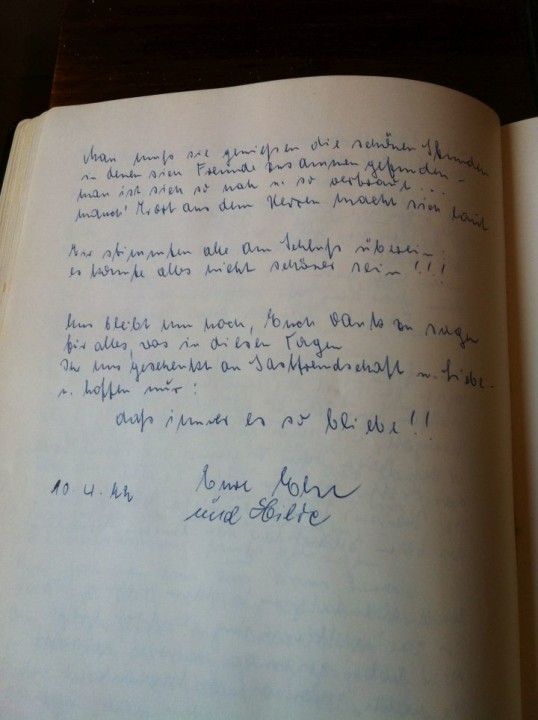 Man muß sie genießen die schönen Stunden
in denen sich Freunde zusammen gefunden -
man ist sich so nah u. so vertraut...
manch' Wort aus dem Herzen macht sich laut
Wir stimmten alle am Schluß überein:
es könnte alles nicht schöner sein!!!
Uns bleibt nun noch, Euch Dank zu sagen
für alles, was in diesen Tagen
Ihr uns geschenkt an Gastfreundschaft u. Liebe -
u. hoffen nur:
daß immer es so bliebe!!
10.4. Eure
und Hilde